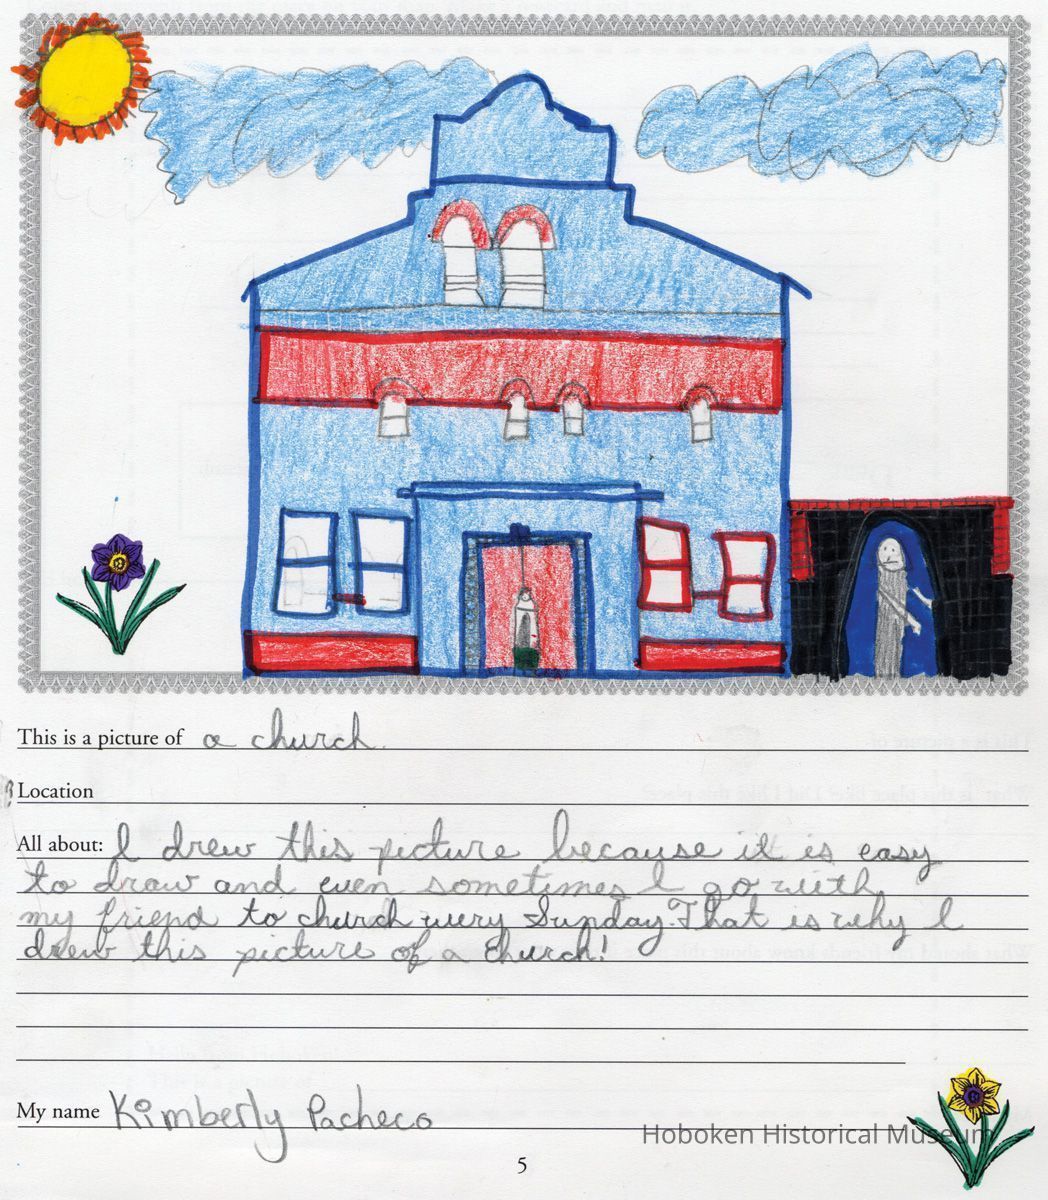 This is a picture of a church.
Location
All about: I drew this picture because it is easy
to draw and even sometimes I go with
my friend to church every Sunday. That is why I
drew this picture of a church!
My name Kimberly Pacheco
Hoboken Historical Museum
5